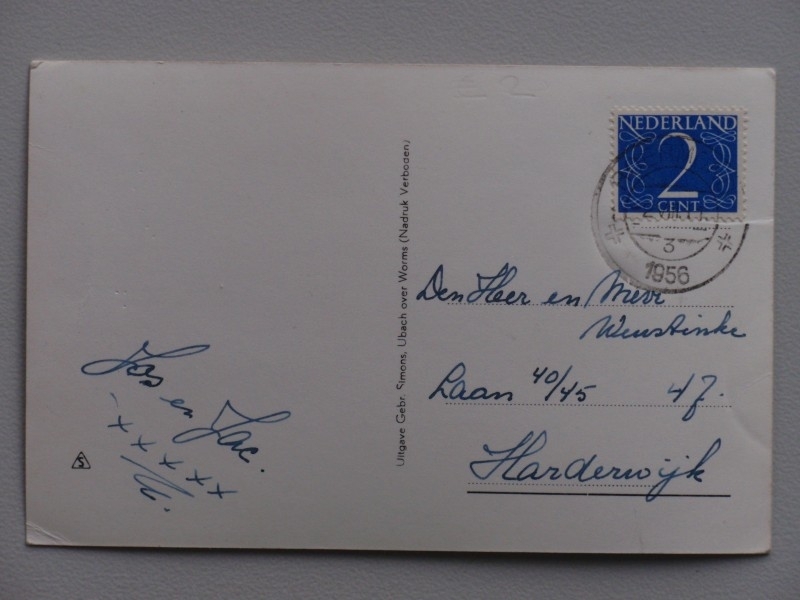 NEDERLAND
2
CENT
3
1956
Den Heer en Mevr
Weustinke
Laan 40/45 47.
Harderwijk
Uitgave Gebr. Simons, Ubach over Worms (Nadruk Verboden)
Jos en Jac.
xxxxx
S